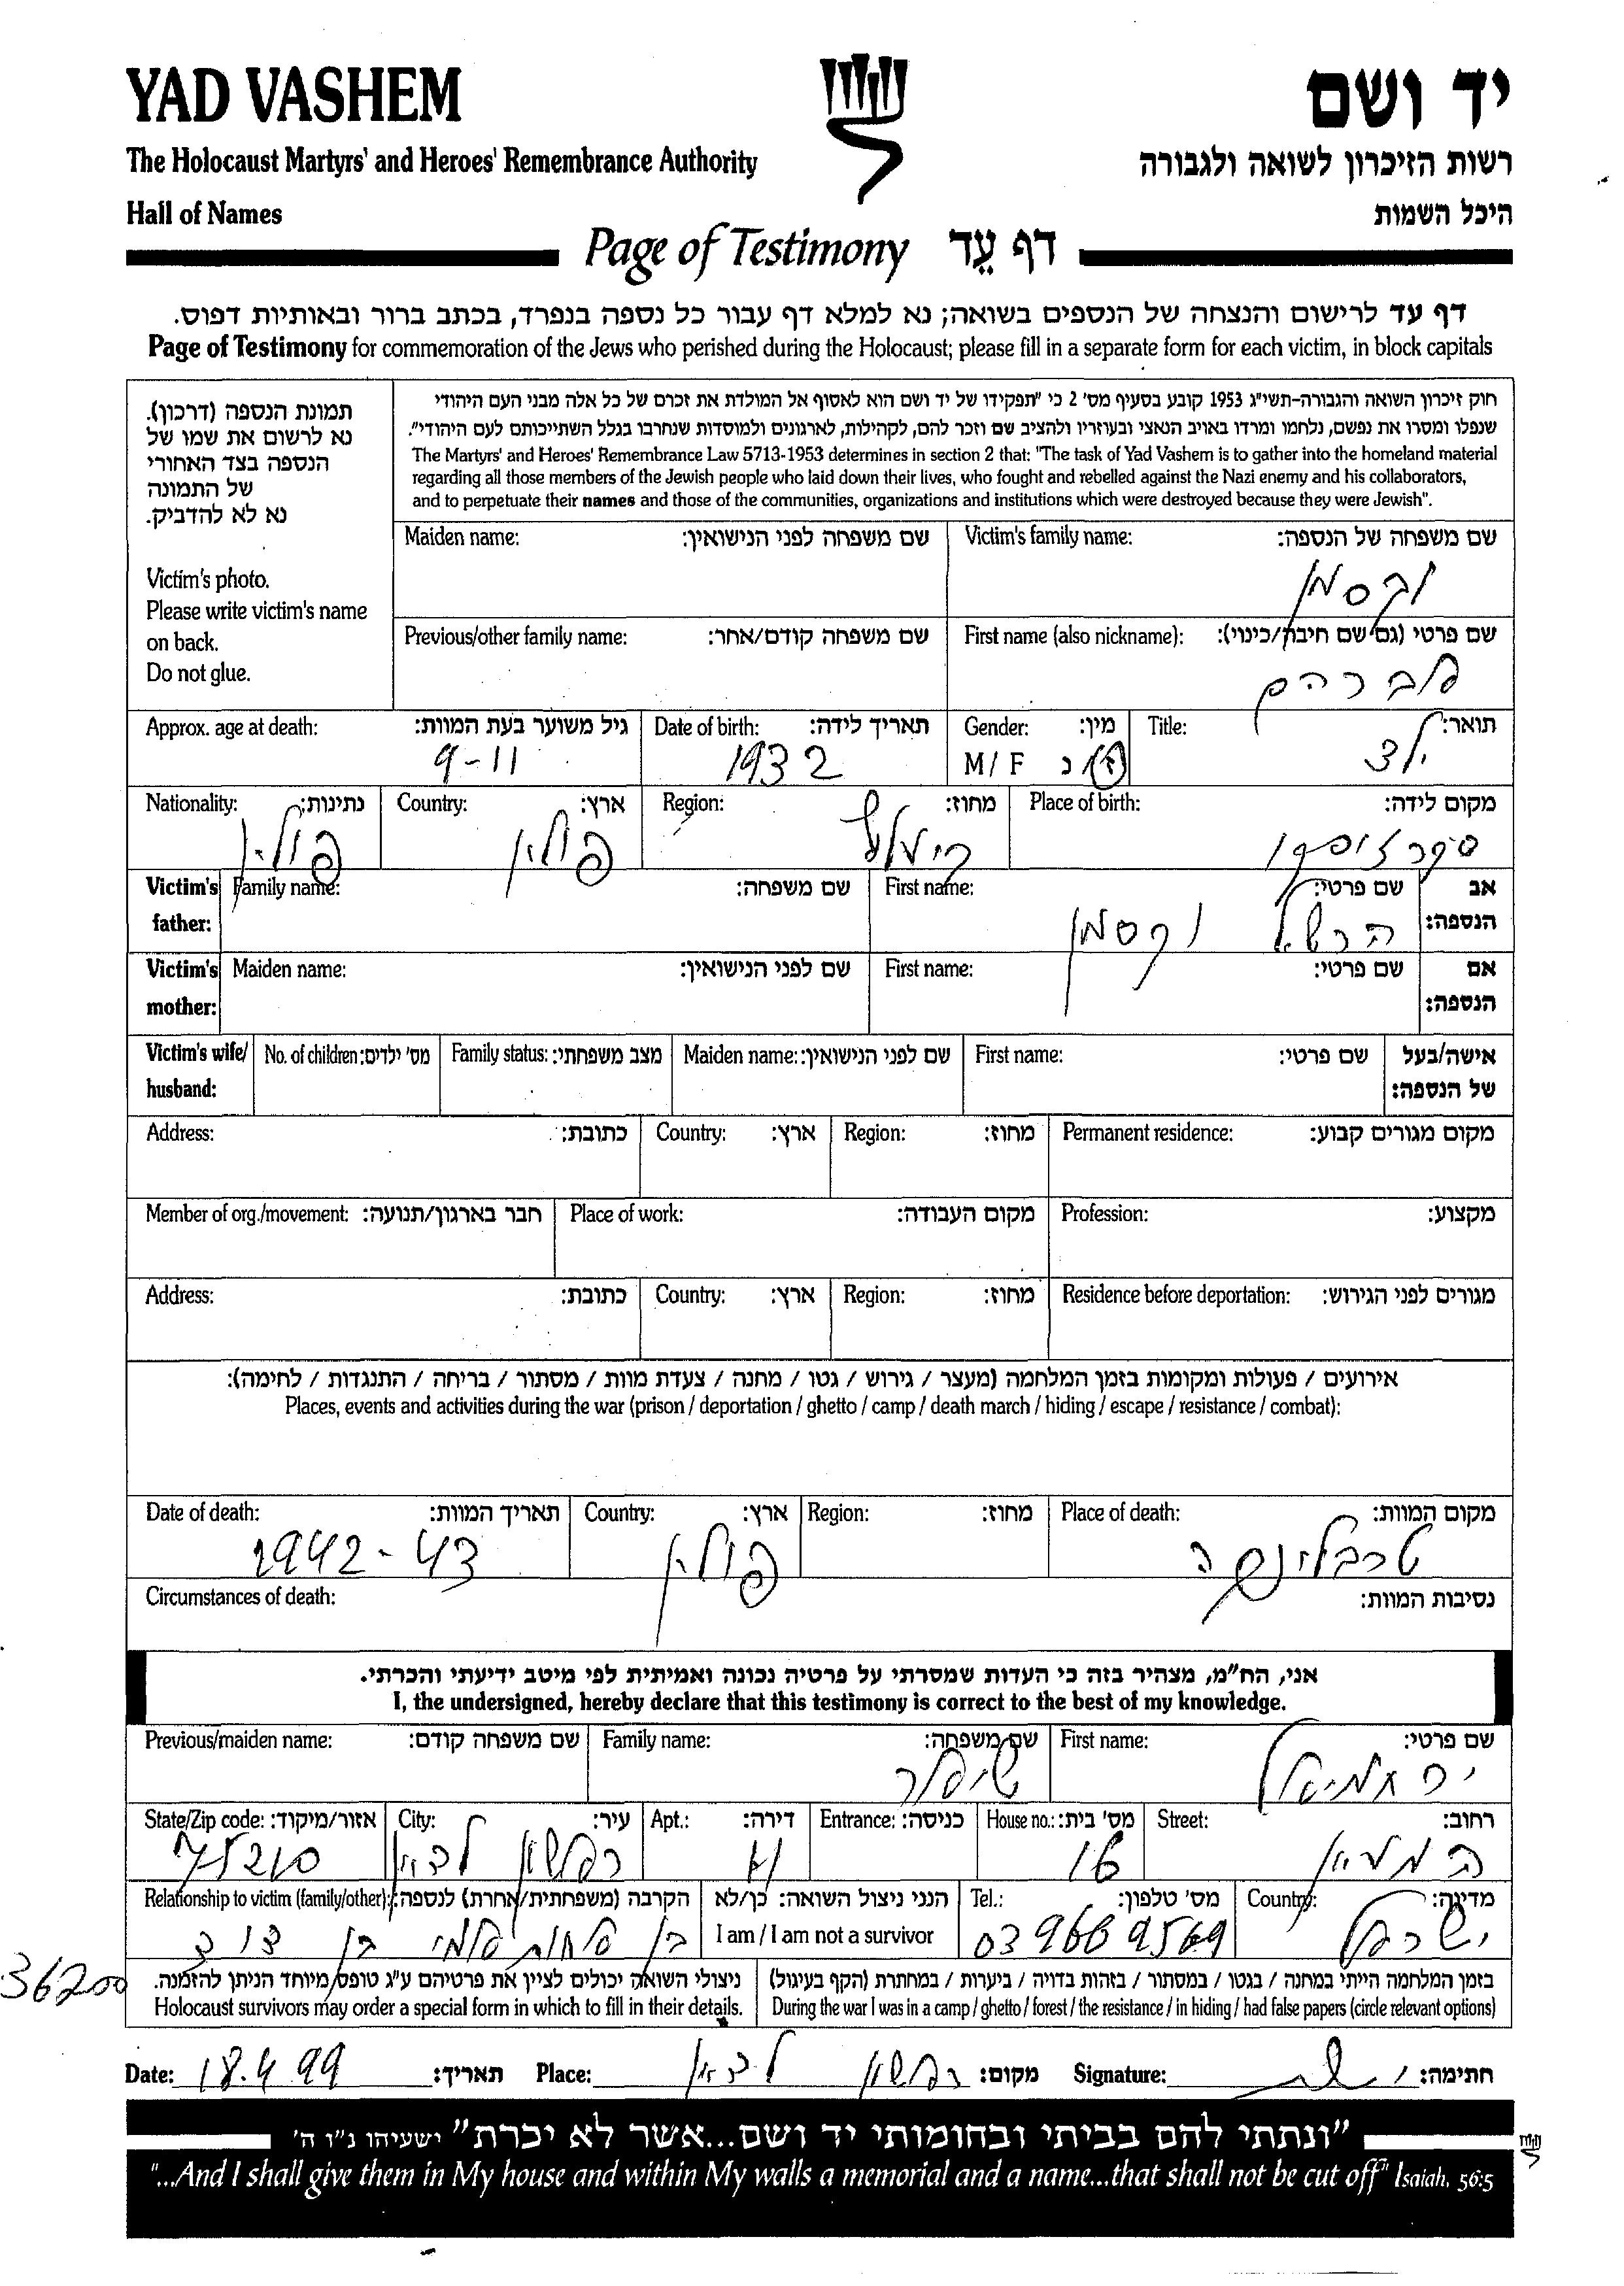 YAD VASHEM
יד ושם
The Holocaust Martyrs' and Heroes' Remembrance Authority
רשות הזיכרון לשואה ולגבורה
Hall of Names
היכל השמות
Page of Testimony דף עֵד
דף עד לרישום והנצחה של הנספים בשואה; נא למלא דף עבור כל נספה בנפרד, בכתב ברור ובאותיות דפוס.
Page of Testimony for commemoration of the Jews who perished during the Holocaust; please fill in a separate form for each victim, in block capitals
תמונת הנספה (דרכון).
נא לרשום את שמו של
הנספה בצד האחורי
של התמונה
נא לא להדביק.
Victim's photo.
Please write victim's name
on back.
Do not glue.
חוק זיכרון השואה והגבורה-תשי"ג 1953 קובע בסעיף מס' 2 כי "תפקידו של יד ושם הוא לאסוף אל המולדת את זכרם של כל אלה מבני העם היהודי
שנפלו ומסרו את נפשם, נלחמו ומרדו באויב הנאצי ובעוזריו ולהציב שם וזכר להם, לקהילות, לארגונים ולמוסדות שנחרבו בגלל השתייכותם לעם היהודי".
The Martyrs' and Heroes' Remembrance Law 5713-1953 determines in section 2 that: "The task of Yad Vashem is to gather into the homeland material
regarding all those members of the Jewish people who laid down their lives, who fought and rebelled against the Nazi enemy and his collaborators,
and to perpetuate their names and those of the communities, organizations and institutions which were destroyed because they were Jewish".
Maiden name: שם משפחה לפני הנישואין: Victim's family name: שם משפחה של הנספה:
וקסמן
Previous/other family name: שם משפחה קודם/אחר: First name (also nickname): שם פרטי (גם שם חיבה/כינוי):
אברהם
Approx. age at death: גיל משוער בעת המוות: Date of birth: תאריך לידה: Gender: מין: Title: תואר:
9-11 1932 M / F ז / נ ילד
Nationality: נתינות: Country: ארץ: Region: מחוז: Place of birth: מקום לידה:
פולין פולין
Victim's father: Family name: שם משפחה: First name: שם פרטי: אב הנספה:
הרשל וקסמן
Victim's mother: Maiden name: שם לפני הנישואין: First name: שם פרטי: אם הנספה:
Victim's wife/ husband: No. of children: מס' ילדים: Family status: מצב משפחתי: Maiden name: שם לפני הנישואין: First name: שם פרטי: אישה/בעל של הנספה:
Address: כתובת: Country: ארץ: Region: מחוז: Permanent residence: מקום מגורים קבוע:
Member of org./movement: חבר בארגון/תנועה: Place of work: מקום העבודה: Profession: מקצוע:
Address: כתובת: Country: ארץ: Region: מחוז: Residence before deportation: מגורים לפני הגירוש:
אירועים / פעולות ומקומות בזמן המלחמה (מעצר / גירוש / גטו / מחנה / צעדת מוות / מסתור / בריחה / התנגדות / לחימה):
Places, events and activities during the war (prison / deportation / ghetto / camp / death march / hiding / escape / resistance / combat):
Date of death: תאריך המוות: Country: ארץ: Region: מחוז: Place of death: מקום המוות:
1942-43 פולין טרבלינקה
Circumstances of death: נסיבות המוות:
אני, הח"מ, מצהיר בזה כי העדות שמסרתי על פרטיה נכונה ואמיתית לפי מיטב ידיעתי והכרתי.
I, the undersigned, hereby declare that this testimony is correct to the best of my knowledge.
Previous/maiden name: שם משפחה קודם: Family name: שם משפחה: First name: שם פרטי:
שיפר ירחמיאל
State/Zip code: אזור/מיקוד: City: עיר: Apt.: דירה: Entrance: כניסה: House no.: מס' בית: Street: רחוב:
75210 ראשון לציון 16
Relationship to victim (family/other): הקרבה (משפחתית/אחרת) לנספה: הנני ניצול השואה: כן/לא Tel.: מס' טלפון: Country: מדינה:
בן אחות אמי בן דוד I am / I am not a survivor 03 9669569 ישראל
36200
ניצולי השואה יכולים לציין את פרטיהם ע"ג טופס מיוחד הניתן להזמנה. בזמן המלחמה הייתי במחנה / בגטו / במסתור / בזהות בדויה / ביערות / במחתרת (הקף בעיגול)
Holocaust survivors may order a special form in which to fill in their details. During the war I was in a camp / ghetto / forest / the resistance / in hiding / had false papers (circle relevant options)
Date: 18.4.99 תאריך: Place: ראשון לציון מקום: Signature: חתימה:
"ונתתי להם בביתי ובחומותי יד ושם...אשר לא יכרת" ישעיהו נ"ו ה'
"...And I shall give them in My house and within My walls a memorial and a name...that shall not be cut off" Isaiah, 56:5